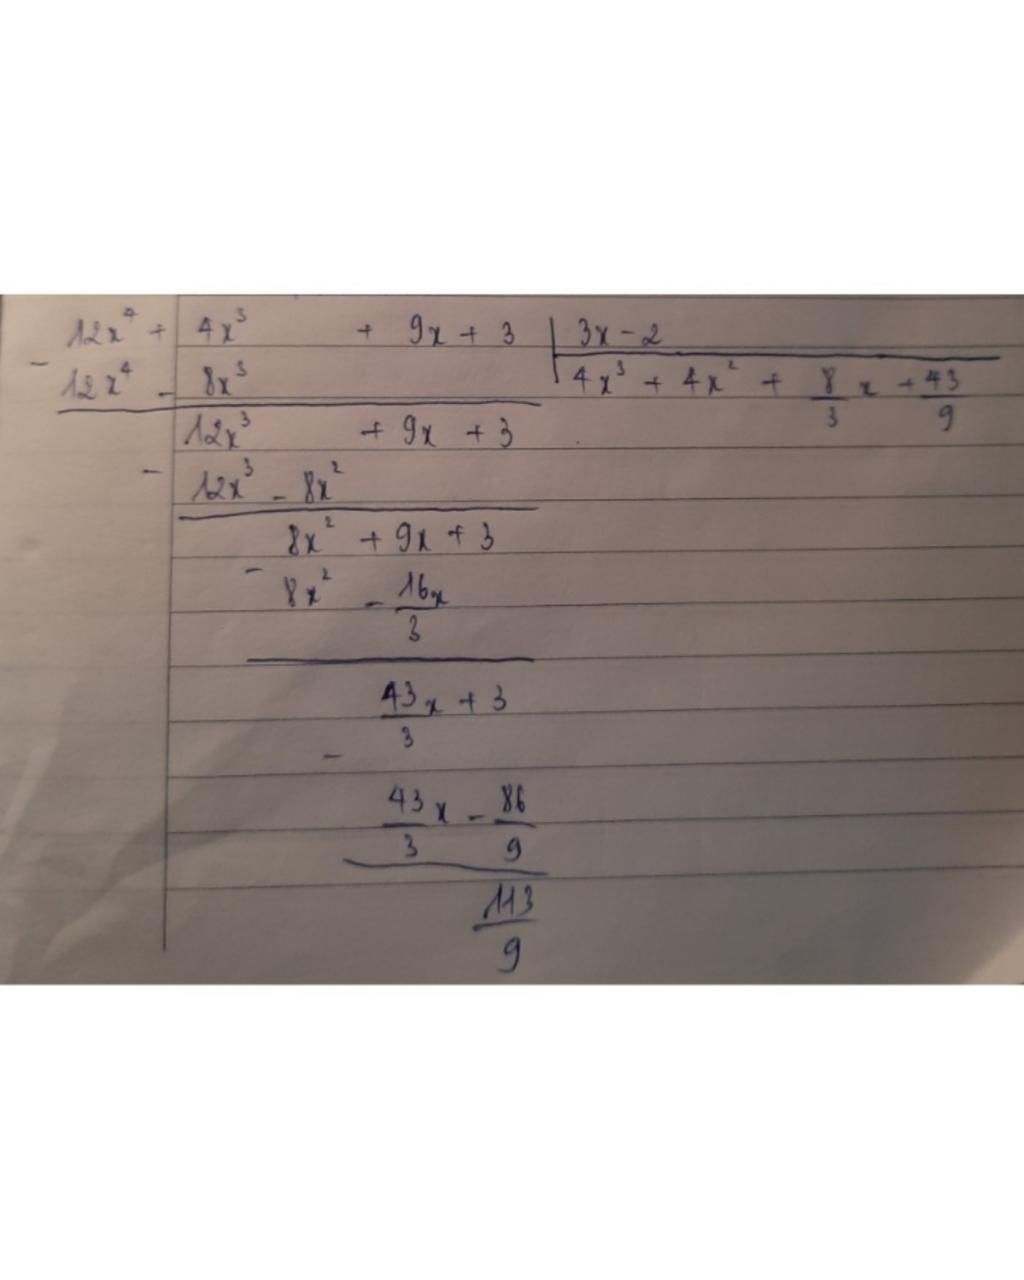 12x⁴ + 4x³ + 9x + 3 | 3x - 2
- 12x⁴ - 8x³ | 4x³ + 4x² + 8/3 x + 43/9
12x³ + 9x + 3
- 12x³ - 8x²
8x² + 9x + 3
- 8x² - 16x/3
43/3 x + 3
- 43/3 x - 86/9
113/9